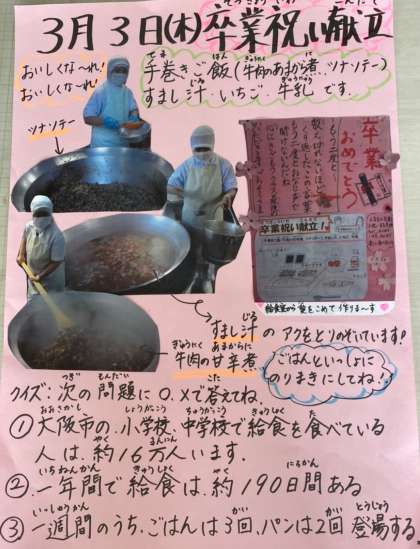 3月3日(木)卒業祝い献立
おいしくな〜れ!
おいしくな〜れ!
手巻きご飯(牛肉のあまから煮、ツナソテー)
すまし汁、いちご、牛乳です。
ツナソテー
卒業
おめでとう
卒業祝い献立!
給食室から愛をこめて作りま〜す
すまし汁のアクをとりのぞいています!
牛肉の甘辛煮
ごはんといっしょに
のりまきにしてね!
クイズ:次の問題に○、×で答えてね。
①大阪市の小学校、中学校で給食を食べている
人は、約16万人います。
②一年間で給食は、約190日間ある
③一週間のうち、ごはんは3回、パンは2回登場する。